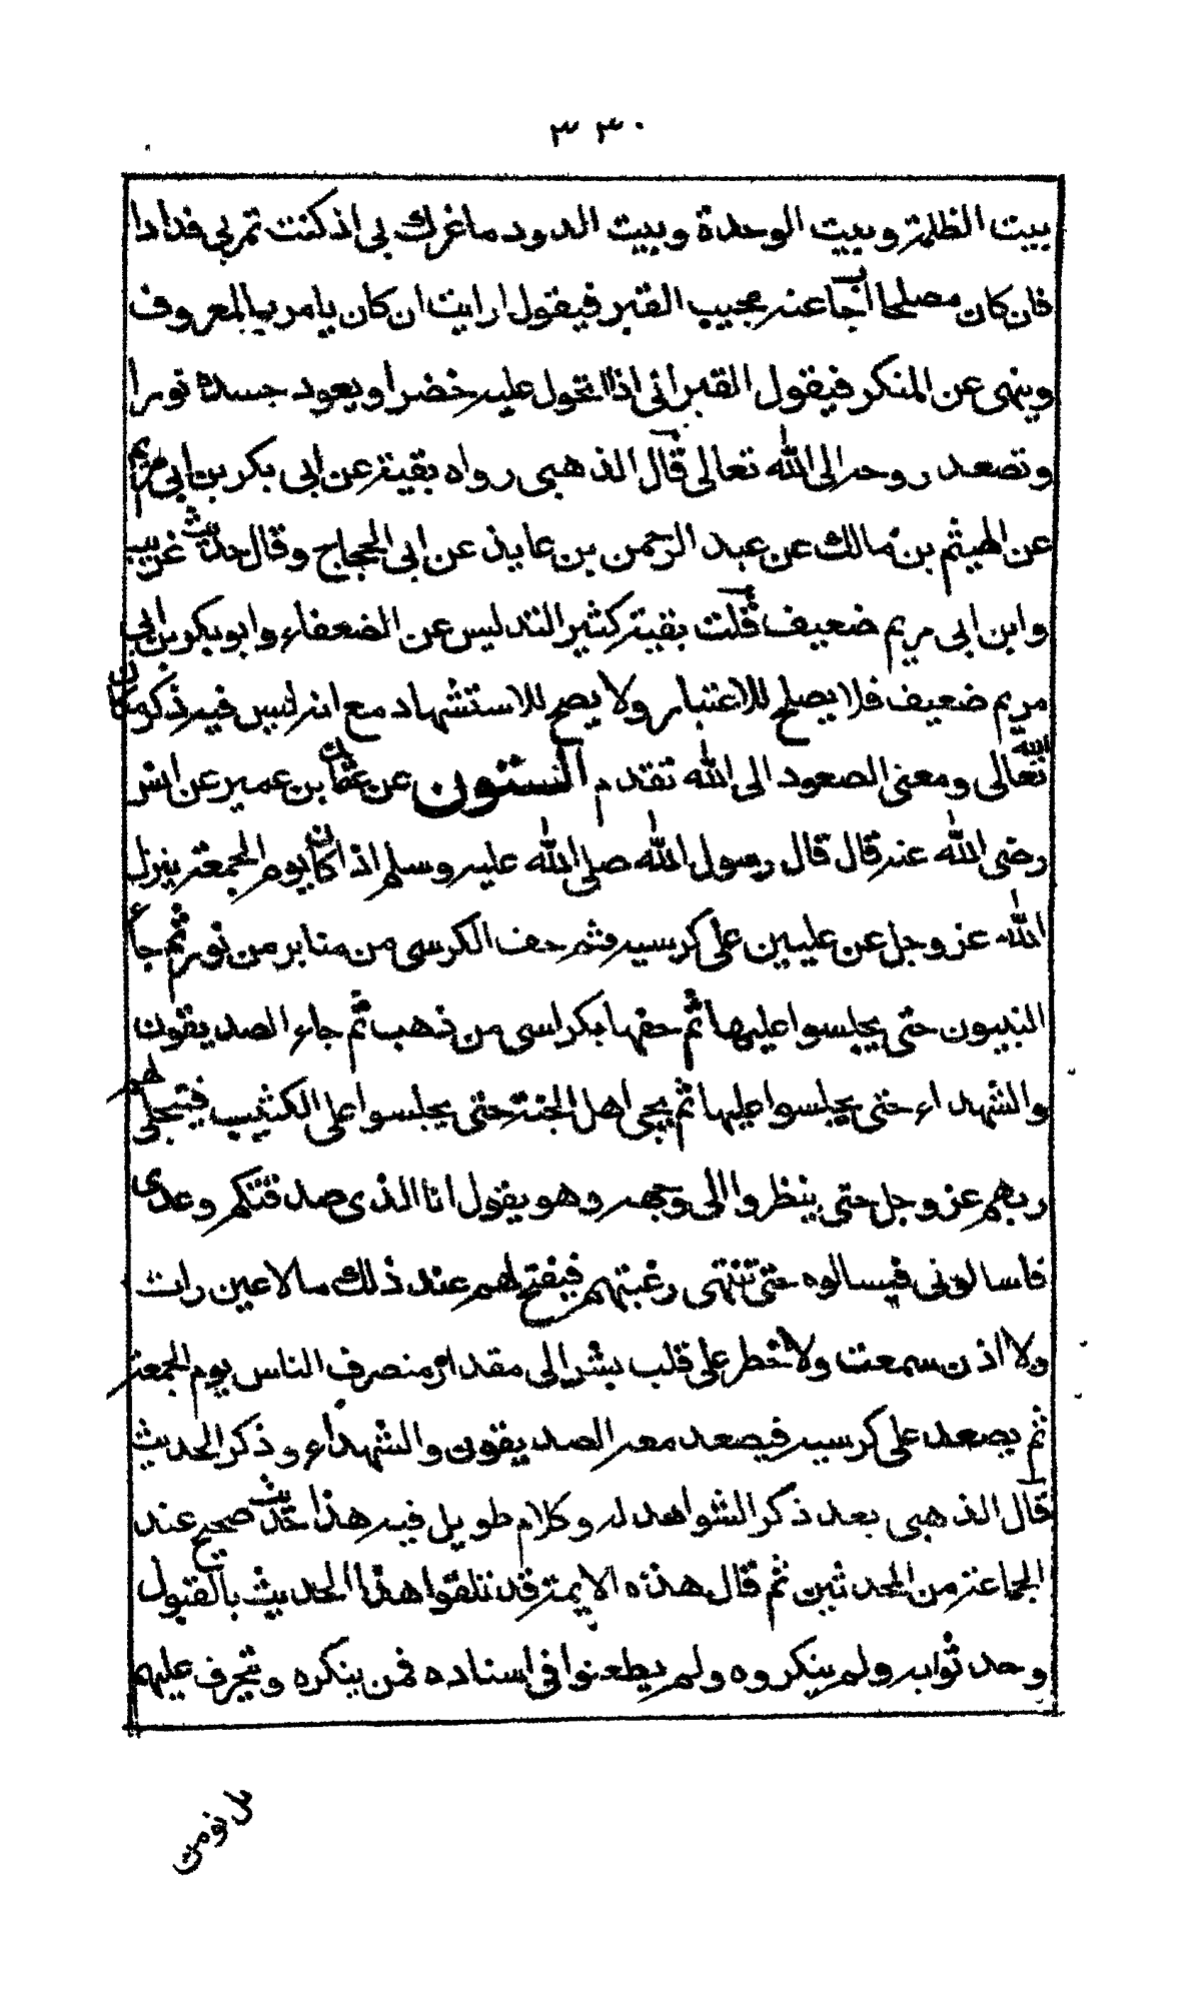 ٣٣٠
بيت الظلمة وبيت الوحدة وبيت الدود ما غرك بي اذ كنت تمر بي فدادا
فان كان مصلحا اجاب عنه مجيب القبر فيقول ارايت ان كان يامر بالمعروف
وينهى عن المنكر فيقول القبر انى اذا اتحول عليه خضرا ويعود جسده نورا
وتصعد روحه الى الله تعالى قال الذهبى رواه بقية عن ابى بكر بن ابى مريم
عن الهيثم بن مالك عن عبد الرحمن بن عايذ عن ابى الحجاج وقال حديث غريب
وابن ابى مريم ضعيف قلت بقية كثير التدليس عن الضعفاء وابو بكر بن ابى
مريم ضعيف فلا يصلح للاعتبار ولا يصح للاستشهاد مع انه ليس فيه ذكر مكان
الله تعالى ومعنى الصعود الى الله تقدم الستون عن عثمان بن عمير عن انس
رضى الله عنه قال قال رسول الله صلى الله عليه وسلم اذا كان يوم الجمعة ينزل
الله عز وجل عن عليين على كرسيه فثم حف الكرسى من منابر من نور ثم جاء
النبيون حتى يجلسوا عليها ثم حفها بكراسى من ذهب ثم جاء الصديقون
والشهداء حتى يجلسوا عليها ثم يجى اهل الجنة حتى يجلسوا على الكثيب فيتجلى لهم
ربهم عز وجل حتى ينظروا الى وجهه وهو يقول انا الذى صدقتكم وعدى
فاسالونى فيسالوه حتى تنتهى رغبتهم فيفتح لهم عند ذلك ما لا عين رات
ولا اذن سمعت ولا خطر على قلب بشر الى مقدار منصرف الناس يوم الجمعة
ثم يصعد على كرسيه فيصعد معه الصديقون والشهداء وذكر الحديث
قال الذهبى بعد ذكر الشواهد له وكلام طويل فيه هذا حديث صحيح عند
الجماعة من المحدثين ثم قال هذه الايمة قد تلقوا هذا الحديث بالقبول
وحدثوا به ولم ينكروه ولم يطعنوا فى اسناده فمن ينكره ويتجرف عليهم
بل نومن